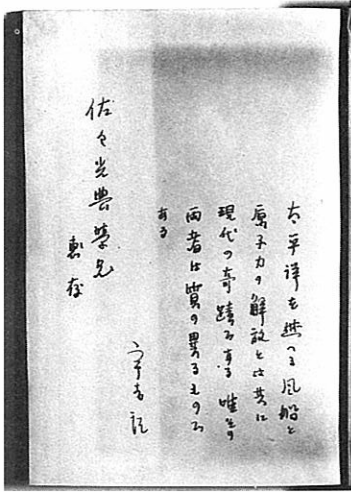 太平洋を越へる風船と
原子力の解放とは共に
現代の奇蹟である唯その
両者は質の異るものである
佐々光典学兄
恵存